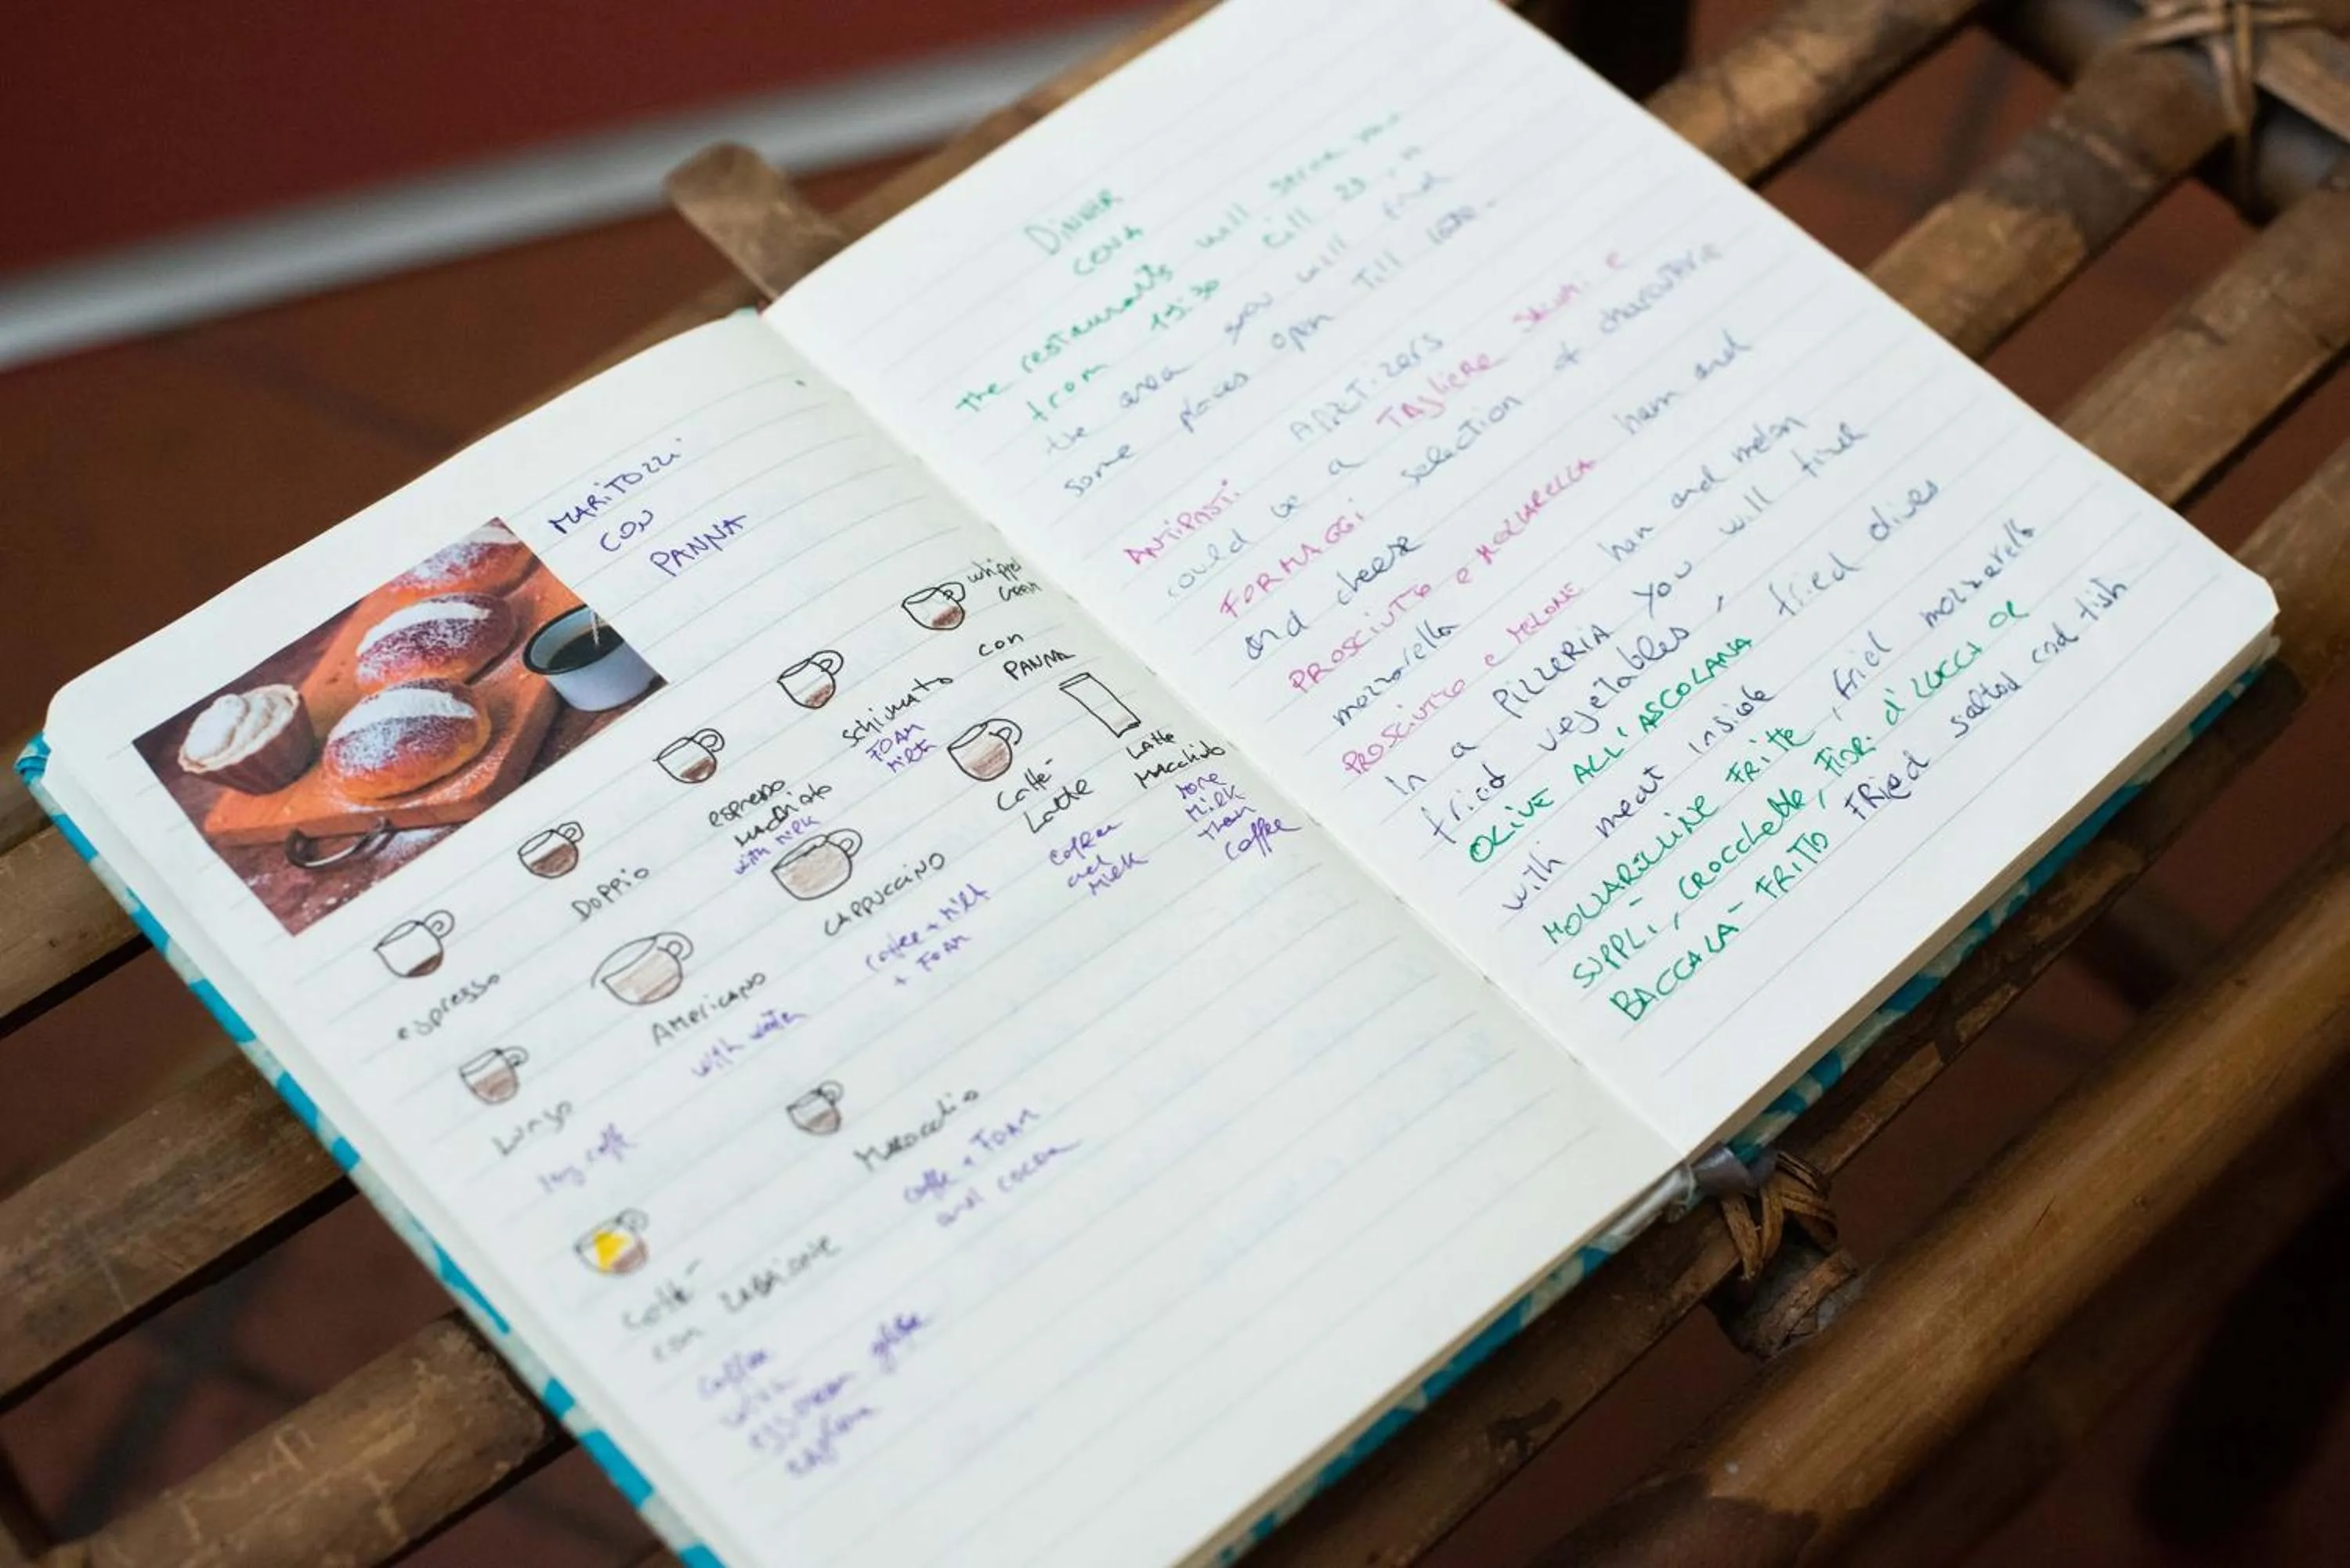 MARITOZZI
CON
PANNA
whipped
cream
con
PANNA
schiumato
FOAM
MILK
espresso
macchiato
with milk
DOPPIO
espresso
Latte
Macchiato
more
MILK
Than
coffee
Caffè-
Latte
coffee
and
MILK
CAPPUCCINO
coffee + milk
+ FOAM
AMERICANO
with water
Lungo
coffe + FOAM
and cocoa
con
coffee
with
DINNER
CENA
The restaurants will serve you
from 19:30 till 23
the area you will find
some places open till late.
ANTIPASTI APPETIZERS
could be a TAGLIERE SALUMI e
FORMAGGI selection of charcuterie
and cheese
PROSCIUTTO e MOZZARELLA ham and
mozzarella
PROSCIUTTO e MELONE ham and melon
In a PIZZERIA YOU will find
fried vegetables,
OLIVE ALL'ASCOLANA fried olives
with meat inside
MOZZARELLINE FRITTE, fried mozzarella
SUPPLI-, CROCCHETTE, FIORI d'ZUCCA OR
BACCALA- FRITTO FRIED salted cod fish